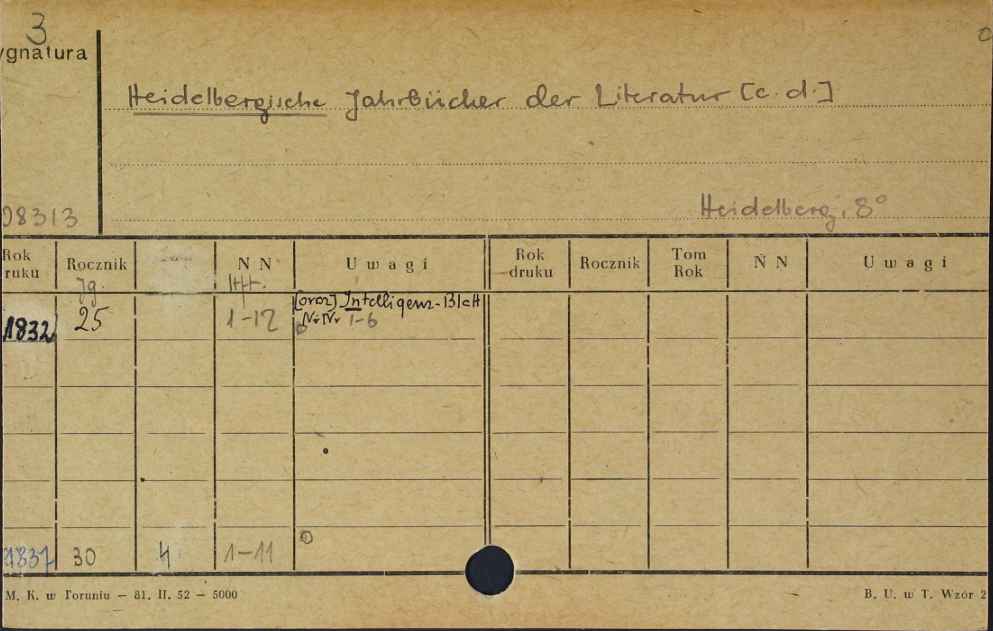 3
ygnatura
Heidelbergische Jahrbücher der Literatur [c.d.]
98313
Heidelberg, 8°
Rok ruku Rocznik N N Uwagi Rok druku Rocznik Tom Rok N N Uwagi
Jg. Hft.
1832 25 1-12 [oraz] Intelligenz-Blatt
NrNr 1-6
1837 30 4 1-11
M. K. w Toruniu — 81. II. 52 — 5000
B. U. w T. Wzór 2